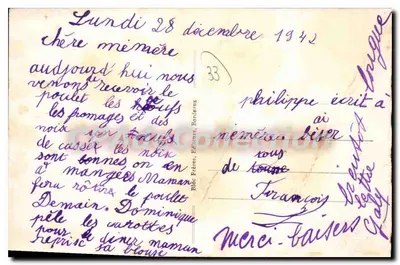 Lundi 28 décembre 1942
chère mémère
aujourd'hui nous
venons de recevoir le
poulet les oeufs
les fromages et des
noix
de casser les noix
sont bonnes on en
a mangées Maman
fera rôtir le poulet
Demain. Dominique
pèle les carottes
pour le diner maman
reprise sa blouse
33
philippe écrit à
mémère
de tous
François
Merci. baisers
bientôt longue
lettre
Gaby